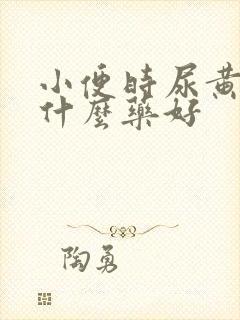 小便时尿黄
什麼藥好
陶勇